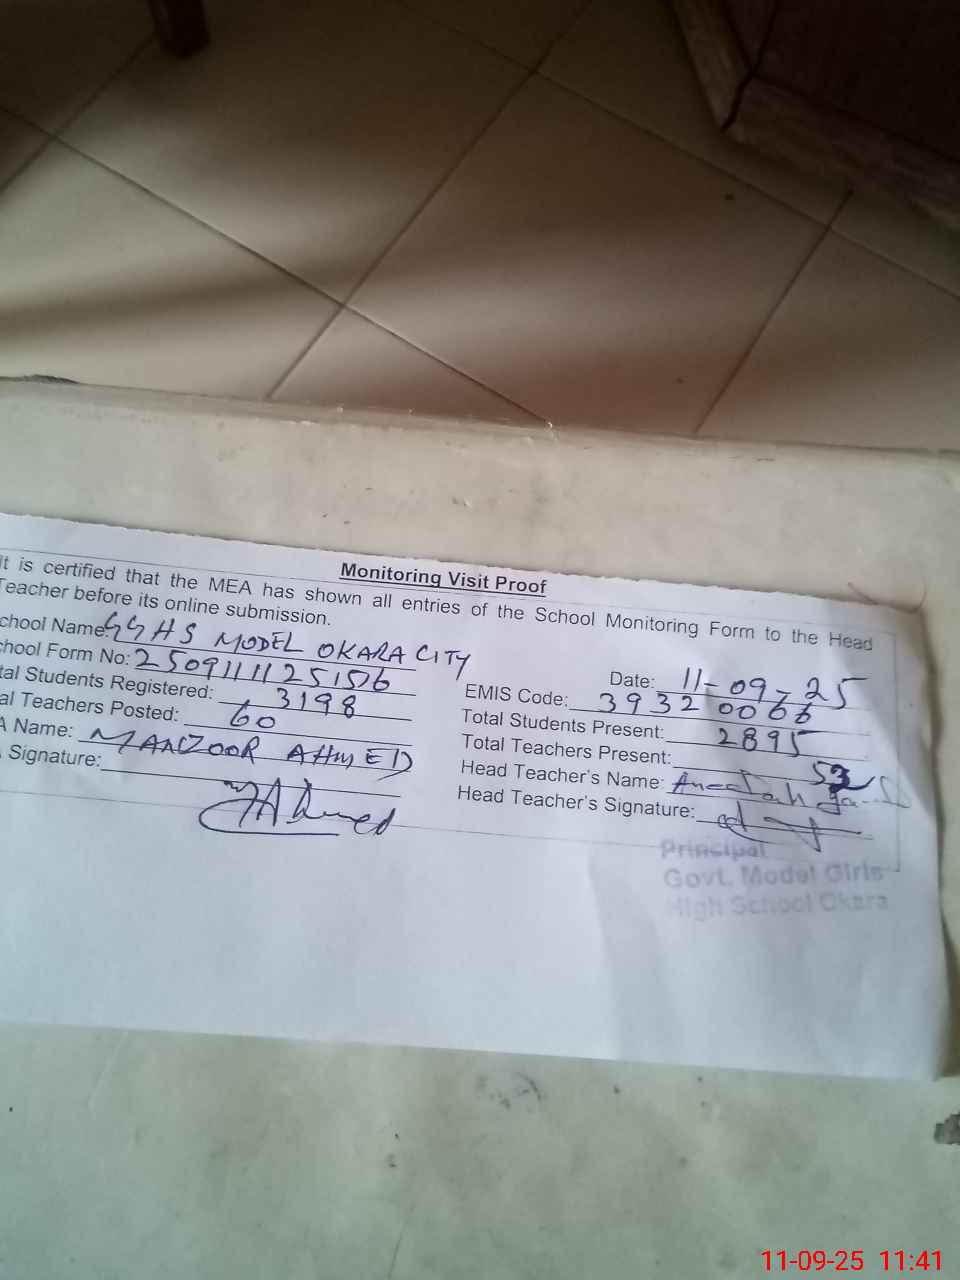 Monitoring Visit Proof
It is certified that the MEA has shown all entries of the School Monitoring Form to the Head
Teacher before its online submission.
chool Name: GGHS MODEL OKARA CITY
Date: 11-09-25
chool Form No: 2509111125156
EMIS Code: 39320066
tal Students Registered: 3198
Total Students Present: 2895
al Teachers Posted: 60
Total Teachers Present: 53
A Name: MANZOOR AHMED
Head Teacher's Name:
Signature: MAhmed
Head Teacher's Signature:
Principal
Govt. Model Girls
High School Okara
11-09-25 11:41